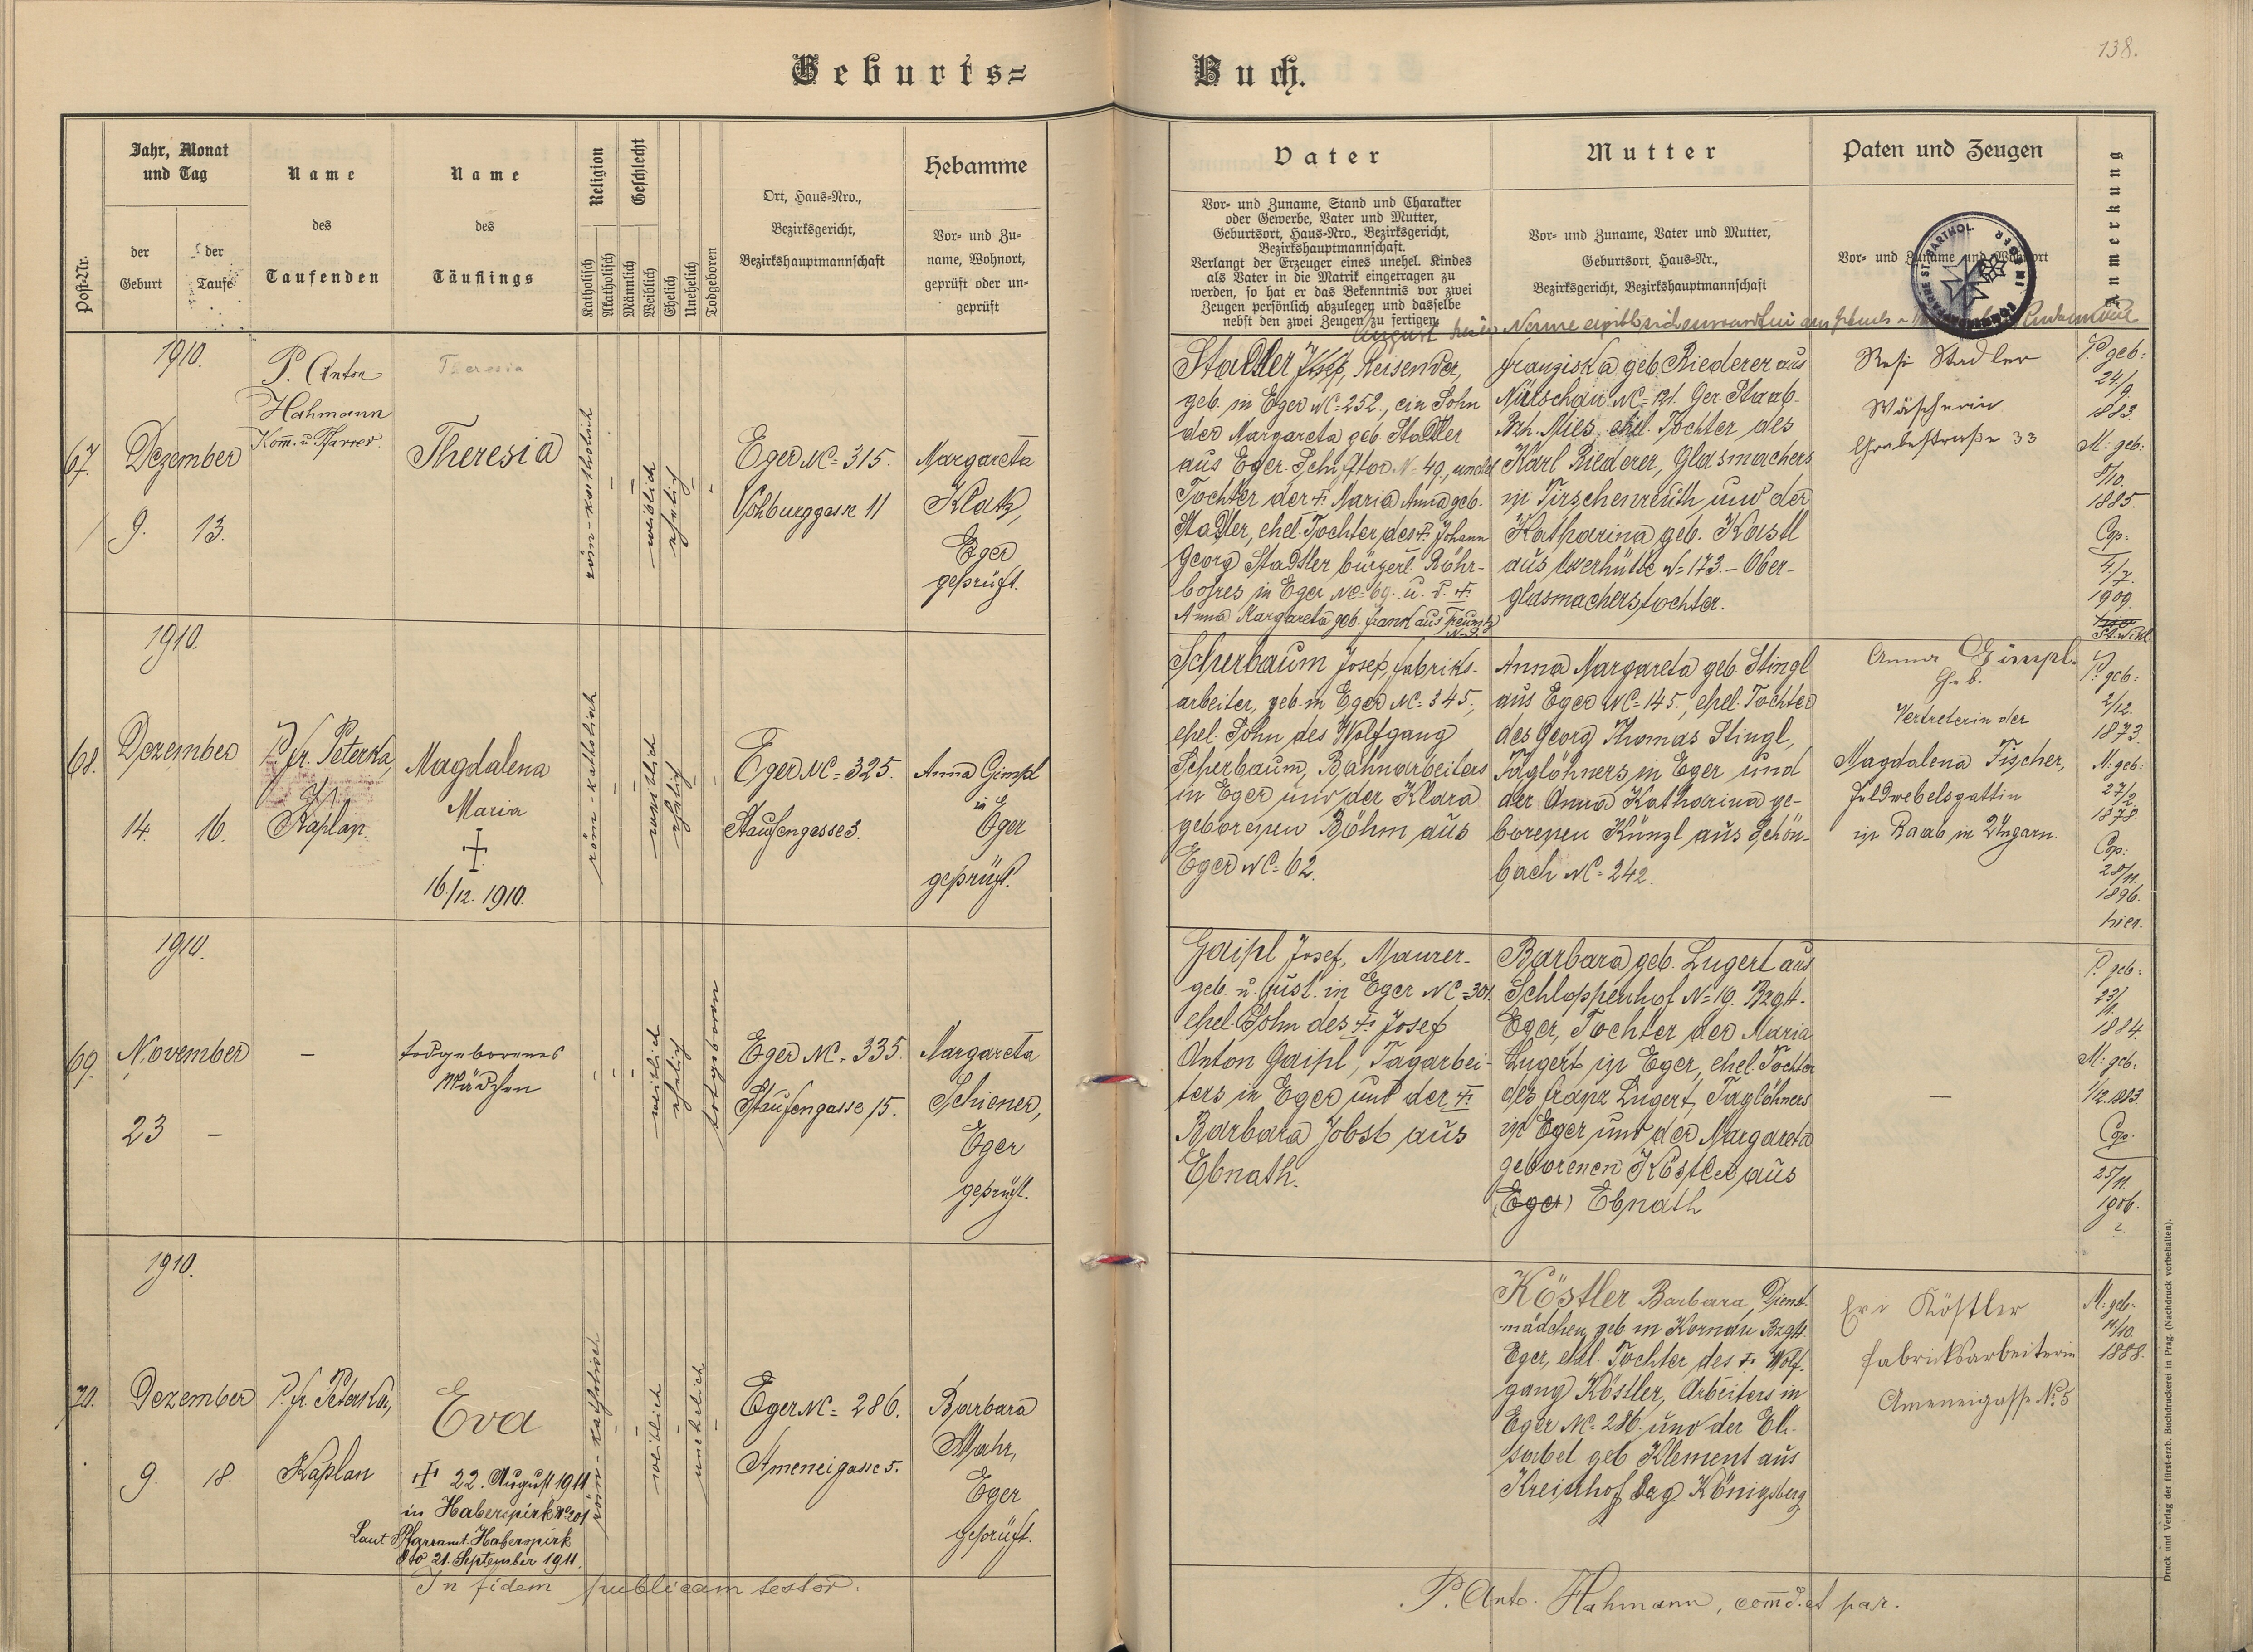 138.
Geburts=
Buch.
Post-Nr.
Jahr, Monat
und Tag
der
Geburt
der
Taufe
Name
des
Taufenden
Name
des
Täuflings
Religion
Katholisch
Akatholisch
Geschlecht
Männlich
Weiblich
Ehelich
Unehelich
Todgeboren
Ort, Haus-Nro.,
Bezirksgericht,
Bezirkshauptmannschaft
Hebamme
Vor- und Zu-
name, Wohnort,
geprüft oder un-
geprüft
Vater
Vor- und Zuname, Stand und Charakter
oder Gewerbe, Vater und Mutter,
Geburtsort, Haus-Nro., Bezirksgericht,
Bezirkshauptmannschaft.
Verlangt der Erzeuger eines unehel. Kindes
als Vater in die Matrik eingetragen zu
werden, so hat er das Bekenntnis vor zwei
Zeugen persönlich abzulegen und dasselbe
nebst den zwei Zeugen zu fertigen.
Mutter
Vor- und Zuname, Vater und Mutter,
Geburtsort, Haus-Nr.,
Bezirksgericht, Bezirkshauptmannschaft
Paten und Zeugen
Vor- und Zuname und Wohnort
Anmerkung
1910.
67.
Dezember
9. 13.
P. Anton
Hahmann
Kom. u. Pfarrer.
Theresia
Theresia
röm-katholisch
weiblich
ehelich
Eger NC= 315.
Vohburggasse 11
Margareta
Klatz,
Eger
geprüft.
August
Stadler Josef, Reisender,
geb. in Eger NC=252., ein Sohn
der Margareta geb. Stadler
aus Eger
Tochter der † Maria Anna geb.
Stadler, ehel. Tochter des † Johann
Georg Stadler bürgerl. Röhr-
bohres in Eger NC=69. u. d. †
Anna Margareta geb. Frank aus
Franziska geb. Riederer aus
Nürschau NC=121. Ger. Staab-
Bzh. Mies, ehel. Tochter des
Karl Riederer, Glasmachers
in Tirschenreuth und der
Katharina geb. Kastl
aus N=173.- Ober-
glasmacherstochter.
Resi Stadler
Wäscherin
Grabestraße 33
P. geb:
24/9.
1883.
M: geb:
8/10.
1885.
Cop:
4/7.
1909.
1910.
68.
Dezember
14. 16.
P. Fr. Peterka,
Kaplan.
Magdalena
Maria
†
16./12. 1910.
röm-katholisch
weiblich
ehelich
Eger NC= 325.
Staufengasse 3.
Anna Gimpl
in
Eger
geprüft.
Scherbaum Josef, Fabriks-
arbeiter, geb. in Eger NC=345.,
ehel. Sohn des Wolfgang
Scherbaum, Bahnarbeiters
in Eger und der Klara
geborenen Böhm aus
Eger NC=62.
Anna Margareta geb. Stingl
aus Eger NC=145., ehel. Tochter
des Georg Thomas Stingl,
Taglöhners in Eger und
der Anna Katharina ge-
borenen Künzl aus Schön-
bach NC=242.
Anna Gimpl.
Heb.
Vertreterin der
Magdalena Fischer,
Feldwebelsgattin
in Raab in Ungarn.
P. geb:
2/12.
1873.
M: geb:
27/2.
1878.
Cop:
28/11.
1896.
hier.
1910.
69.
November
23 -
-
todgeborenes
Mädchen
weiblich
ehelich
totgeboren
Eger NC= 335.
Staufengasse 15.
Margareta
Schiener,
Eger
geprüft.
Gaipl Josef, Maurer-
geb. u. zust. in Eger NC=301.
ehel. Sohn des † Josef
Anton Gaipl, Tagarbei-
ters in Eger und der †
Barbara Jobst aus
Ebnath.
Barbara geb. Lugert aus
Schloppenhof N=19. Bzgtt.
Eger, Tochter der Maria
Lugert in Eger, ehel. Tochter
des Franz Lugert, Taglöhners
in Eger und der Margareta
geborenen Köstler aus
(Eger) Ebnath
-
P. geb:
23/1.
1884.
M: geb:
1/12. 1883.
Cop.
25/11.
1906.
2.
1910.
70.
Dezember
9. 18.
P. Fr. Peterka,
Kaplan
Eva
† 22. August 1911
in Haberspirk NC 201
Laut Pfarramt Haberspirk
dto 21. September 1911.
röm-katholisch
weiblich
unehelich
Eger NC= 286.
Ameneigasse 5.
Barbara
Mahr,
Eger
geprüft.
Köstler Barbara, Dienst-
mädchen, geb. in Kornau Bzgtt.
Eger, ehel. Tochter des † Wolf-
gang Köstler, Arbeiters in
Eger NC=286. und der Eli-
sabet geb. Klement aus
Kreinhof Bzg. Königsberg
Evi Köstler
Fabriksarbeiterin
Ameneigasse No. 5
M: geb:
11/10.
1888.
In fidem publicam testor.
P. Anto. Hahmann, comd. et par.
Druck und Verlag der fürst-erzb. Buchdruckerei in Prag. (Nachdruck vorbehalten).